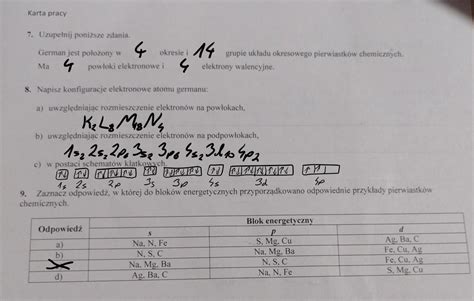 Karta pracy
7. Uzupełnij poniższe zdania.
German jest położony w 4 okresie i 14 grupie układu okresowego pierwiastków chemicznych.
Ma 4 powłoki elektronowe i 4 elektrony walencyjne.
8. Napisz konfiguracje elektronowe atomu germanu:
a) uwzględniając rozmieszczenie elektronów na powłokach,
K2L8M18N4
b) uwzględniając rozmieszczenie elektronów na podpowłokach,
1s2 2s2 2p6 3s2 3p6 4s2 3d10 4p2
c) w postaci schematów klatkowych.
1s 2s 2p 3s 3p 4s 3d 4p
9. Zaznacz odpowiedź, w której do bloków energetycznych przyporządkowano odpowiednie przykłady pierwiastków
chemicznych.
Odpowiedź Blok energetyczny
s p d
a) Na, N, Fe S, Mg, Cu Ag, Ba, C
b) N, S, C Na, Mg, Ba Fe, Cu, Ag
Na, Mg, Ba N, S, C Fe, Cu, Ag
d) Ag, Ba, C Na, N, Fe S, Mg, Cu